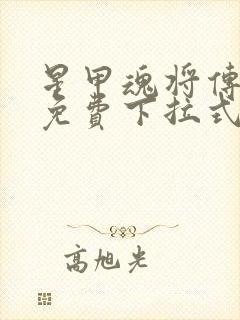 星甲魂将傳
免費下拉式
高旭光